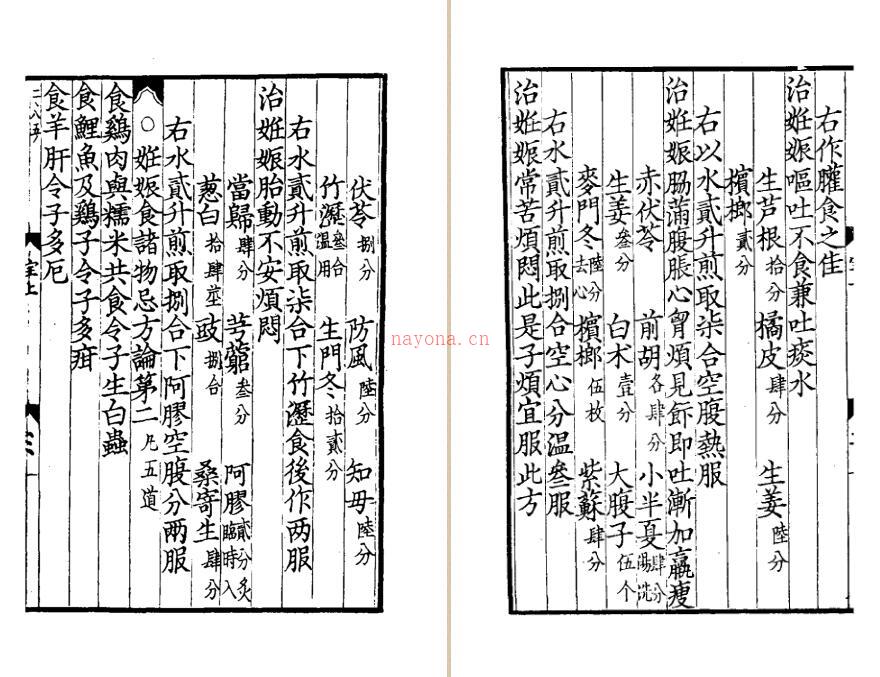 右作臛食之佳
治妊娠嘔吐不食兼吐痰水
生芦根拾分 橘皮肆分 生姜陸分
檳榔貳分
右以水貳升煎取柒合空腹熱服
治妊娠脇滿腹脹心胷煩見飰即吐漸加羸瘦
赤伏苓 前胡各肆分 小半夏肆分湯洗
生姜叁分 白术壹分 大腹子伍个
麥門冬陸分去心 檳榔伍枚 紫蘇肆分
右水貳升煎取捌合空心分温叁服
治妊娠常苦煩悶此是子煩宜服此方
伏苓捌分 防風陸分 知母陸分
竹瀝叁合温用 生門冬拾貳分
右水貳升煎取柒合下竹瀝食後作两服
治妊娠胎動不安煩悶
當歸肆分 芎藭叁分 阿膠貳分炙臨時入
葱白拾肆莖 豉捌合 桑寄生肆分
右水貳升煎取捌合下阿膠空腹分两服
○妊娠食諸物忌方論第二凡五道
食鷄肉與糯米共食令子生白蟲
食鯉魚及鷄子令子多疳
食羊肝令子多厄
nayona.cn